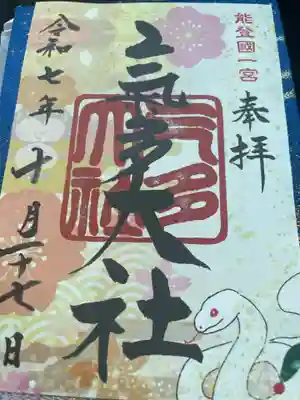 能登國一宮
奉拝
氣多大社
氣多大社
令和七年十月二十七日